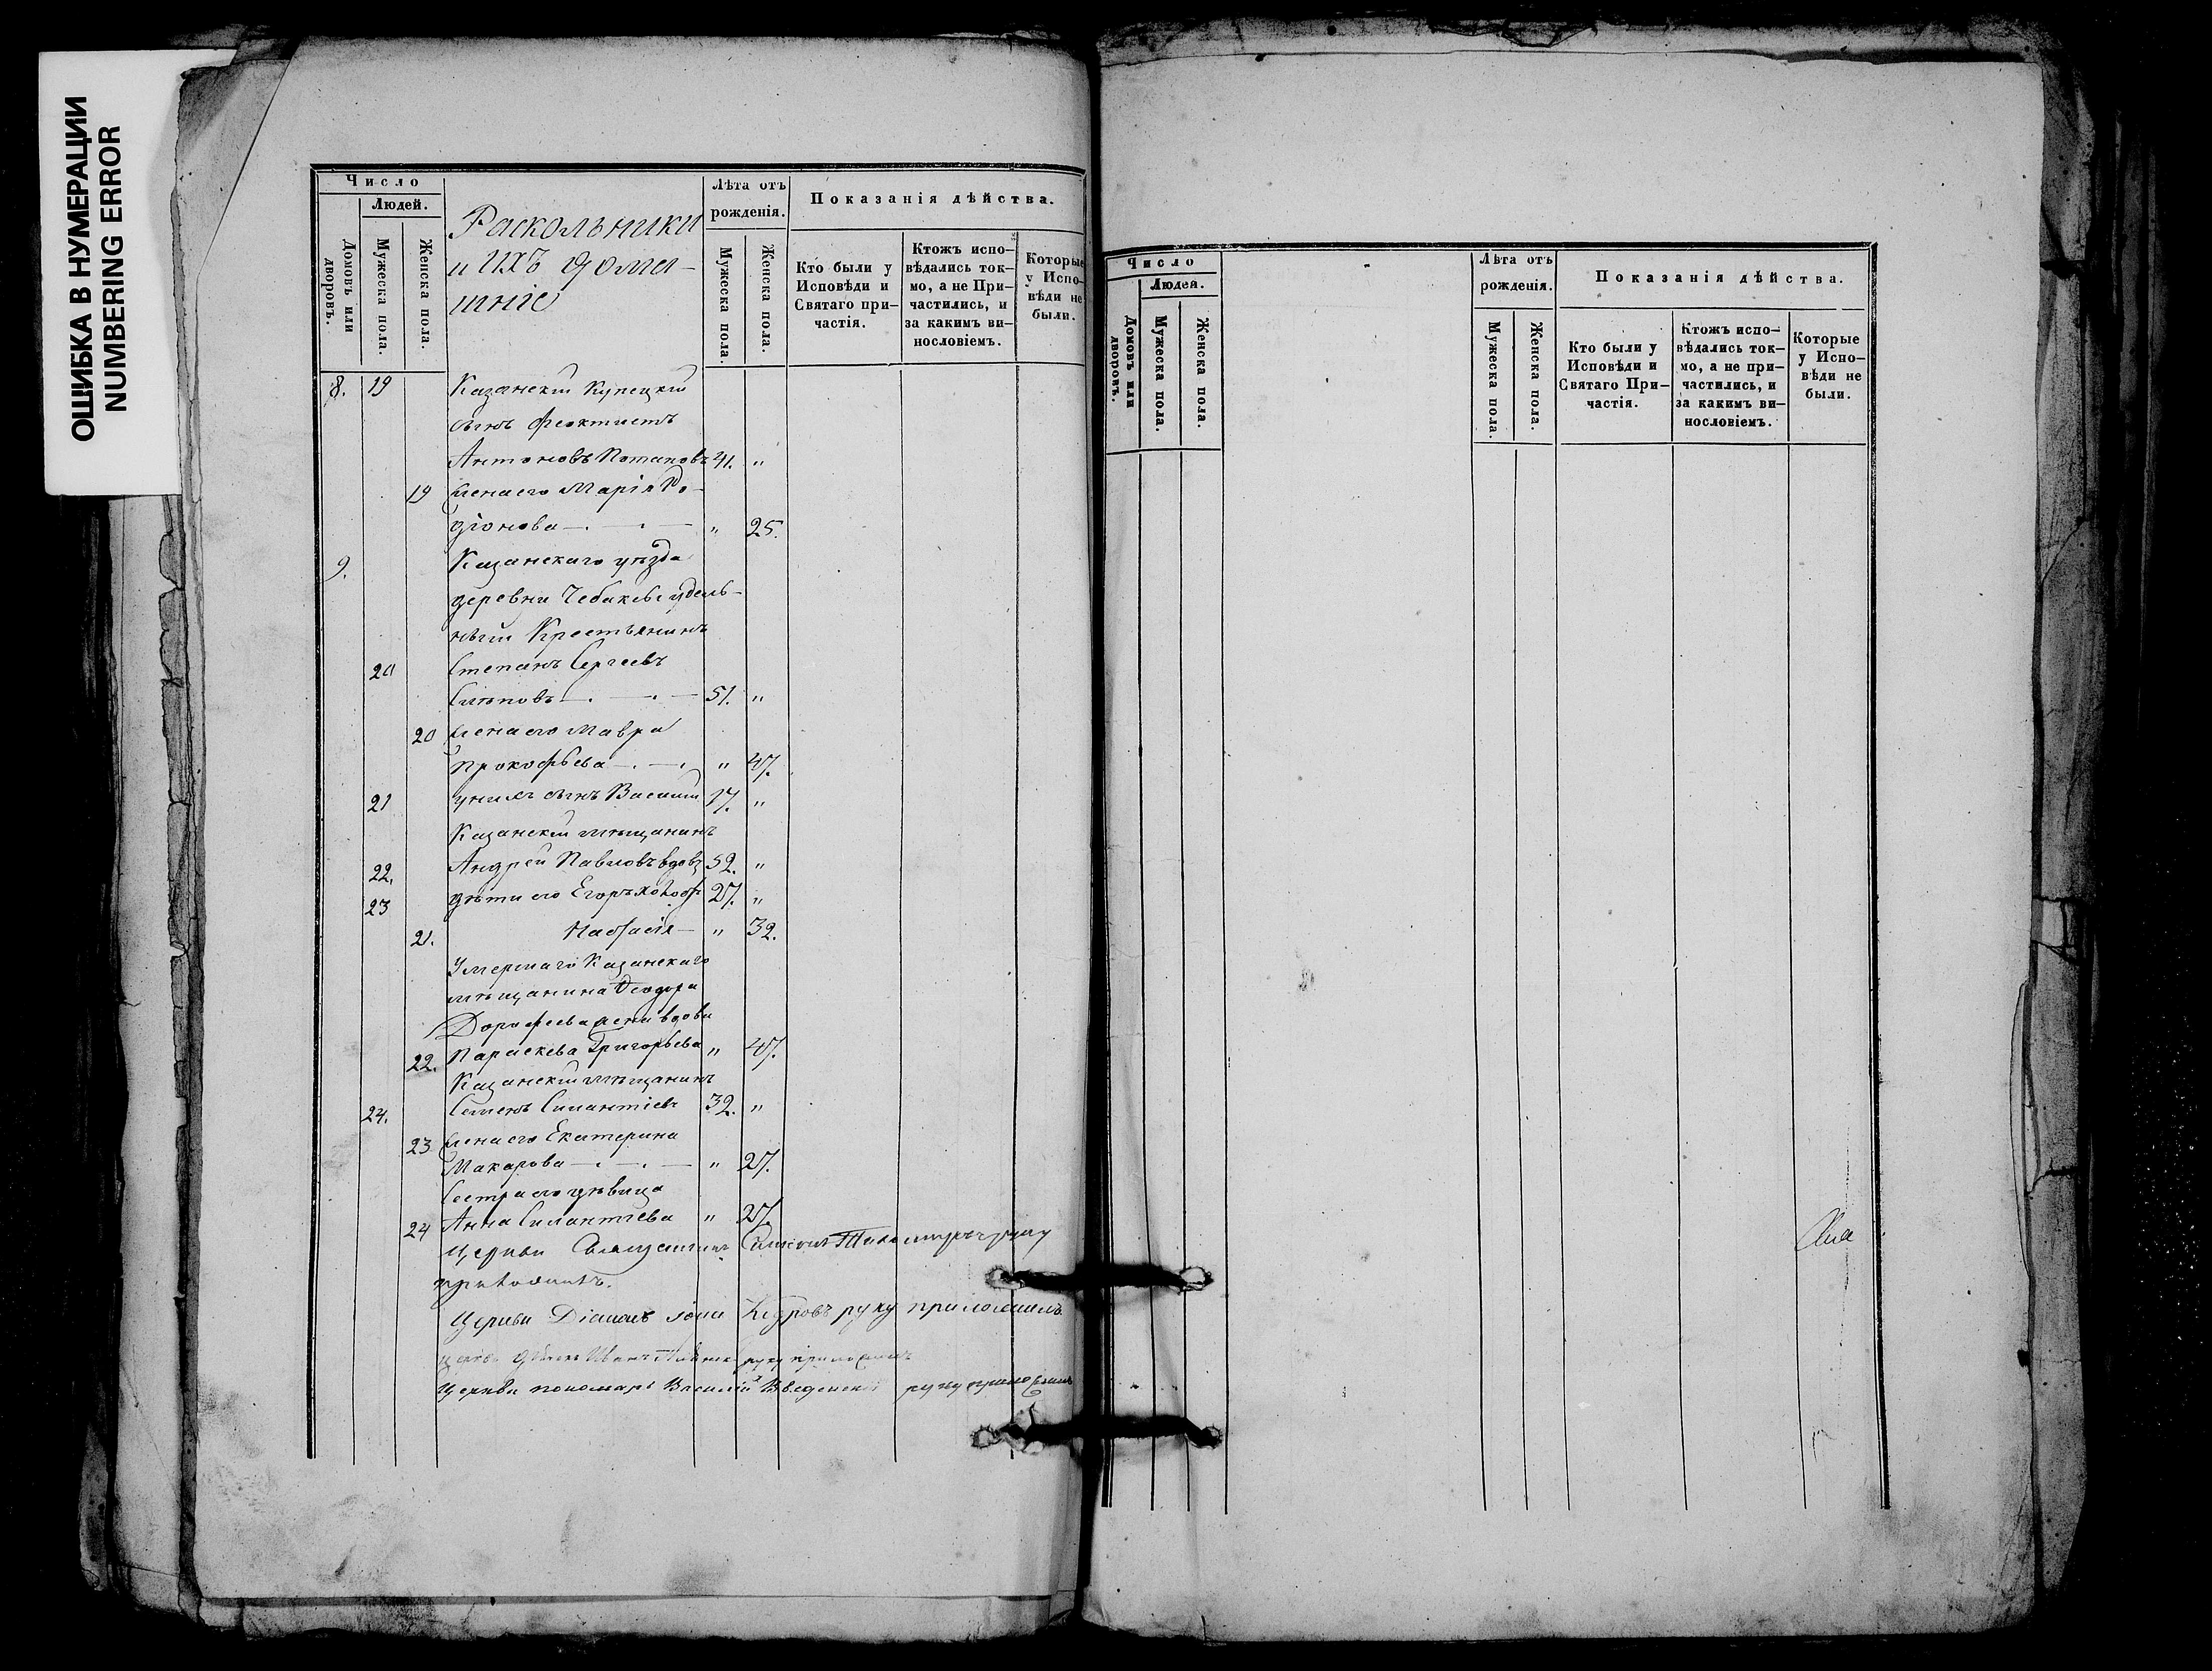 ОШИБКА В НУМЕРАЦИИ
NUMBERING ERROR
Число
Людей.
Домовъ или дворовъ.
Мужеска пола.
Женска пола.
Раскольники
и ихъ дома-
шніе
Лѣта отъ рожденія.
Мужеска пола.
Женска пола.
Показанія дѣйства.
Кто были у Исповѣди и Святаго при-частія.
Ктожъ испо-вѣдались ток-мо, а не При-частились, и за какимъ ви-нословіемъ.
Которые у Испо-вѣди не были.
8. 19 Казанскій Купецкій
сынъ Феоктистъ
Антоновъ Потаповъ 41. "
19 жена его Марія Ро-
діонова — " 25.
9. Казанскаго уѣзда
деревни Чебаксы удѣль-
ный Крестьянинъ
20 Степанъ Сергеевъ
51. "
20 жена его Мавра
Прокофьева — " 47.
21 у нихъ сынъ Василій 17. "
Казанскій мѣщанинъ
22. Андрей Павловъ вдовъ 52. "
23 дѣти его Егоръ холос 27. "
21. Настасія — " 32.
Умершаго Казанскаго
мѣщанина Феодора
Дорофеева жена вдова
22. Параскева Григорьева " 47.
Казанскій мѣщанинъ
24. Семенъ Силантіевъ 32. "
23 жена его Екатерина
Макарова — " 27.
Сестра его дѣвица
24 Анна Силантіева " 27.
Церкви Священникъ руку
приложилъ.
Церкви Діаконъ Кедровъ руку приложилъ
Иванъ руку приложилъ
Церкви пономарь Василій Введенскій руку приложилъ
Число
Людей.
Домовъ или дворовъ.
Мужеска пола.
Женска пола.
Лѣта отъ рожденія.
Мужеска пола.
Женска пола.
Показанія дѣйства.
Кто были у Исповѣди и Святаго При-частія.
Ктожъ испо-вѣдались ток-мо, а не при-частились, и за какимъ ви-нословіемъ.
Которые у Испо-вѣди не были.